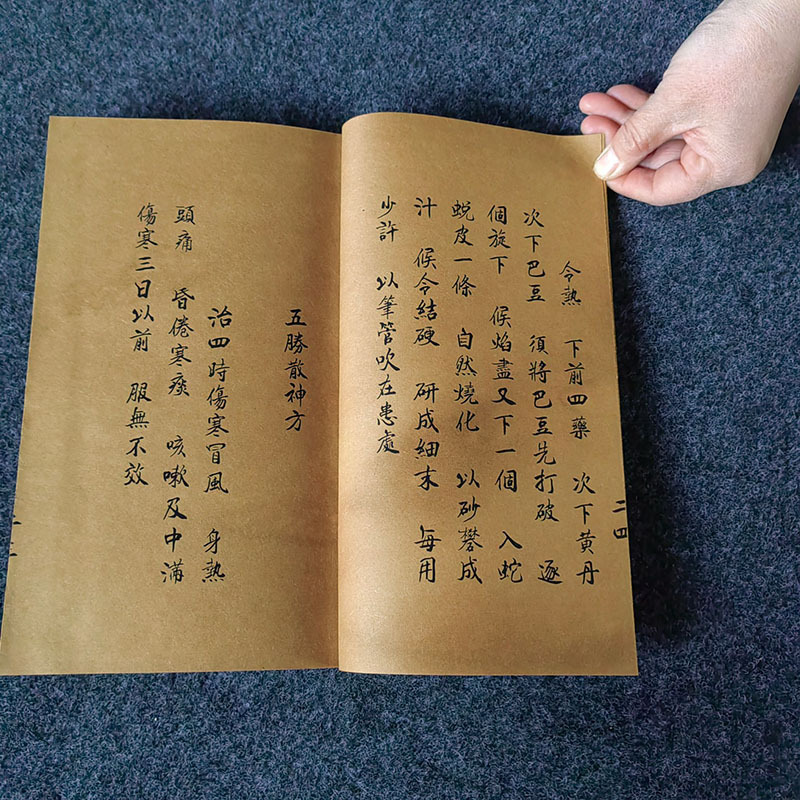 令熱 下前四藥 次下黄丹
次下巴豆 須將巴豆先打破 逐
個旋下 候焰盡又下一個 入蛇
蛻皮一條 自然燒化 以砂礬成
汁 候令結硬 研成細末 每用
少許 以筆管吹在患處
二四
五勝散神方
治四時傷寒冒風 身熱
頭痛 昏倦寒痰 咳嗽及中滿
傷寒三日以前 服無不效